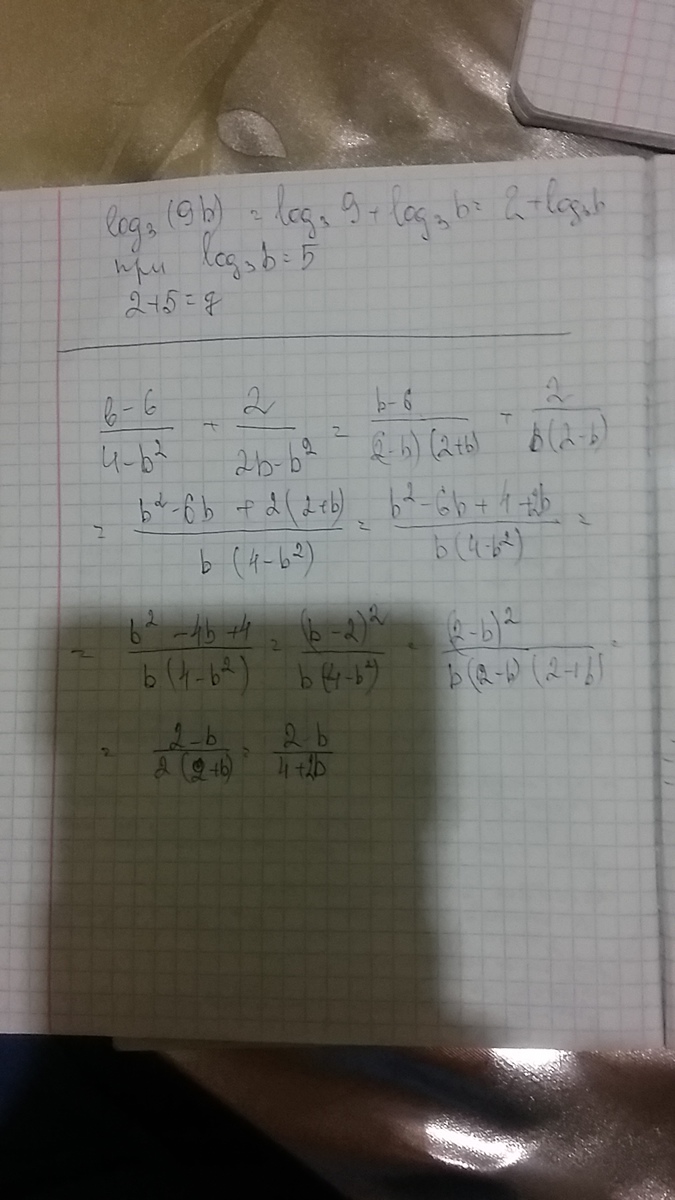 log₃(9b) = log₃ 9 + log₃ b = 2 + log₃ b
при log₃ b = 5
2+5=7
(b-6)/(4-b²) + 2/(2b-b²) = (b-6)/((2-b)(2+b)) + 2/(b(2-b))
= (b²-6b+2(2+b))/(b(4-b²)) = (b²-6b+4+2b)/(b(4-b²)) =
= (b²-4b+4)/(b(4-b²)) = (b-2)²/(b(4-b²)) = (2-b)²/(b(2-b)(2+b)) =
= (2-b)/(2(2+b)) = (2-b)/(4+2b)